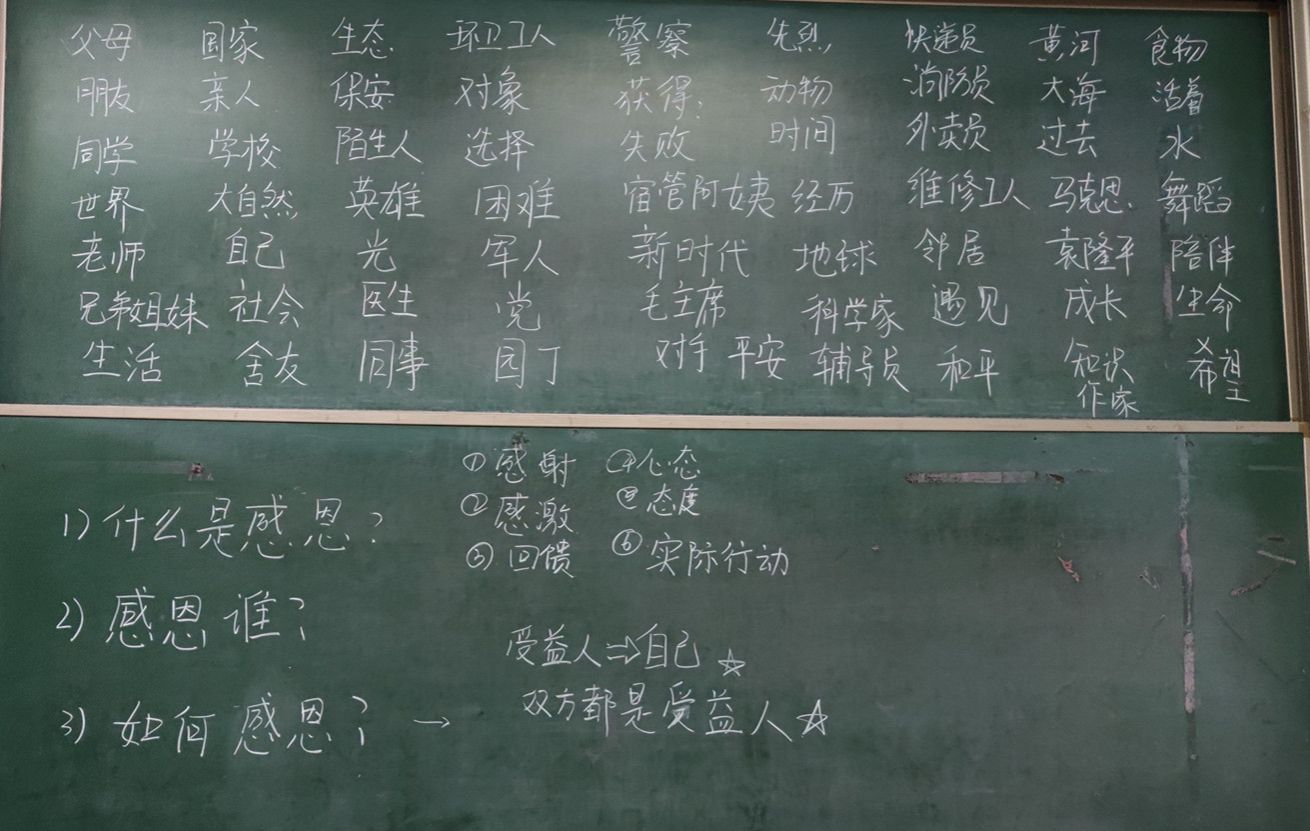 父母 国家 生态 环卫工人 警察 先烈 快递员 黄河 食物
朋友 亲人 保安 对象 获得 动物 消防员 大海 活着
同学 学校 陌生人 选择 失败 时间 外卖员 过去 水
世界 大自然 英雄 困难 宿管阿姨 经历 维修工人 马克思 舞蹈
老师 自己 光 军人 新时代 地球 邻居 袁隆平 陪伴
兄弟姐妹 社会 医生 党 毛主席 科学家 遇见 成长 生命
生活 舍友 同事 园丁 对手 平安 辅导员 和平 知识 希望
作家
①感射 ④心态
1)什么是感恩? ②感激 ⑤态度
③回馈 ⑥实际行动
2)感恩谁?
受益人⇒自己☆
3)如何感恩?→ 双方都是受益人☆